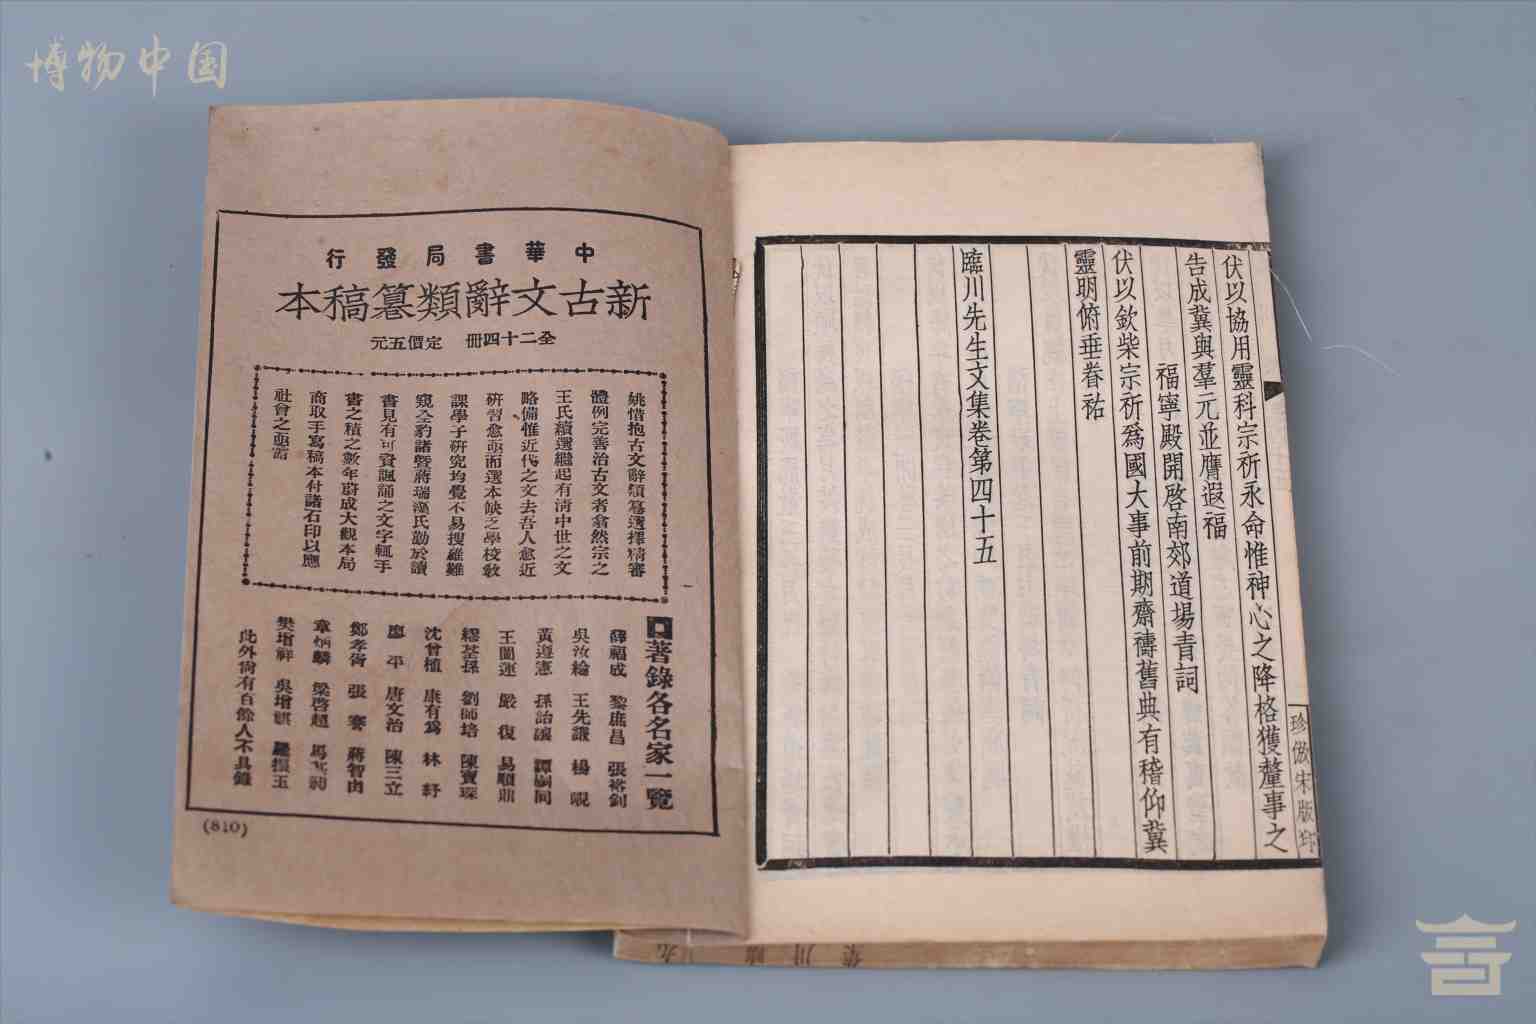 博物中国
伏以協用靈科宗祈永命惟神心之降格獲釐事之
告成冀與羣元並膺遐福
福寧殿開啓南郊道場青詞
伏以欽柴宗祈爲國大事前期齋禱舊典有稽仰冀
靈明俯垂眷祐
臨川先生文集卷第四十五
珍倣宋版印
中華書局發行
新古文辭類纂稿本
全二十四冊 定價五元
姚惜抱古文辭類纂選擇精審
體例完善治古文者翕然宗之
王氏續選繼起有清中世之文
略備惟近代之文去吾人愈近
研習愈亟而選本缺乏學校教
課學子研究均覺不易搜羅難
窺全豹諸暨蔣瑞藻氏勤於讀
書見有可資諷誦之文字輒手
書之積之數年蔚成大觀本局
商取手寫稿本付諸石印以應
社會之亟需
著錄各名家一覽
薛福成 黎庶昌 張裕釗
吳汝綸 王先謙 楊 峴
黃遵憲 孫詒讓 譚嗣同
王闓運 嚴 復 易順鼎
繆荃孫 劉師培 陳寶琛
沈曾植 康有爲 林 紓
廖 平 唐文治 陳三立
鄭孝胥 張 謇 蔣智由
章炳麟 梁啓超 馬其昶
樊增祥 吳增祺 羅振玉
此外尙有百餘人不具錄
(810)